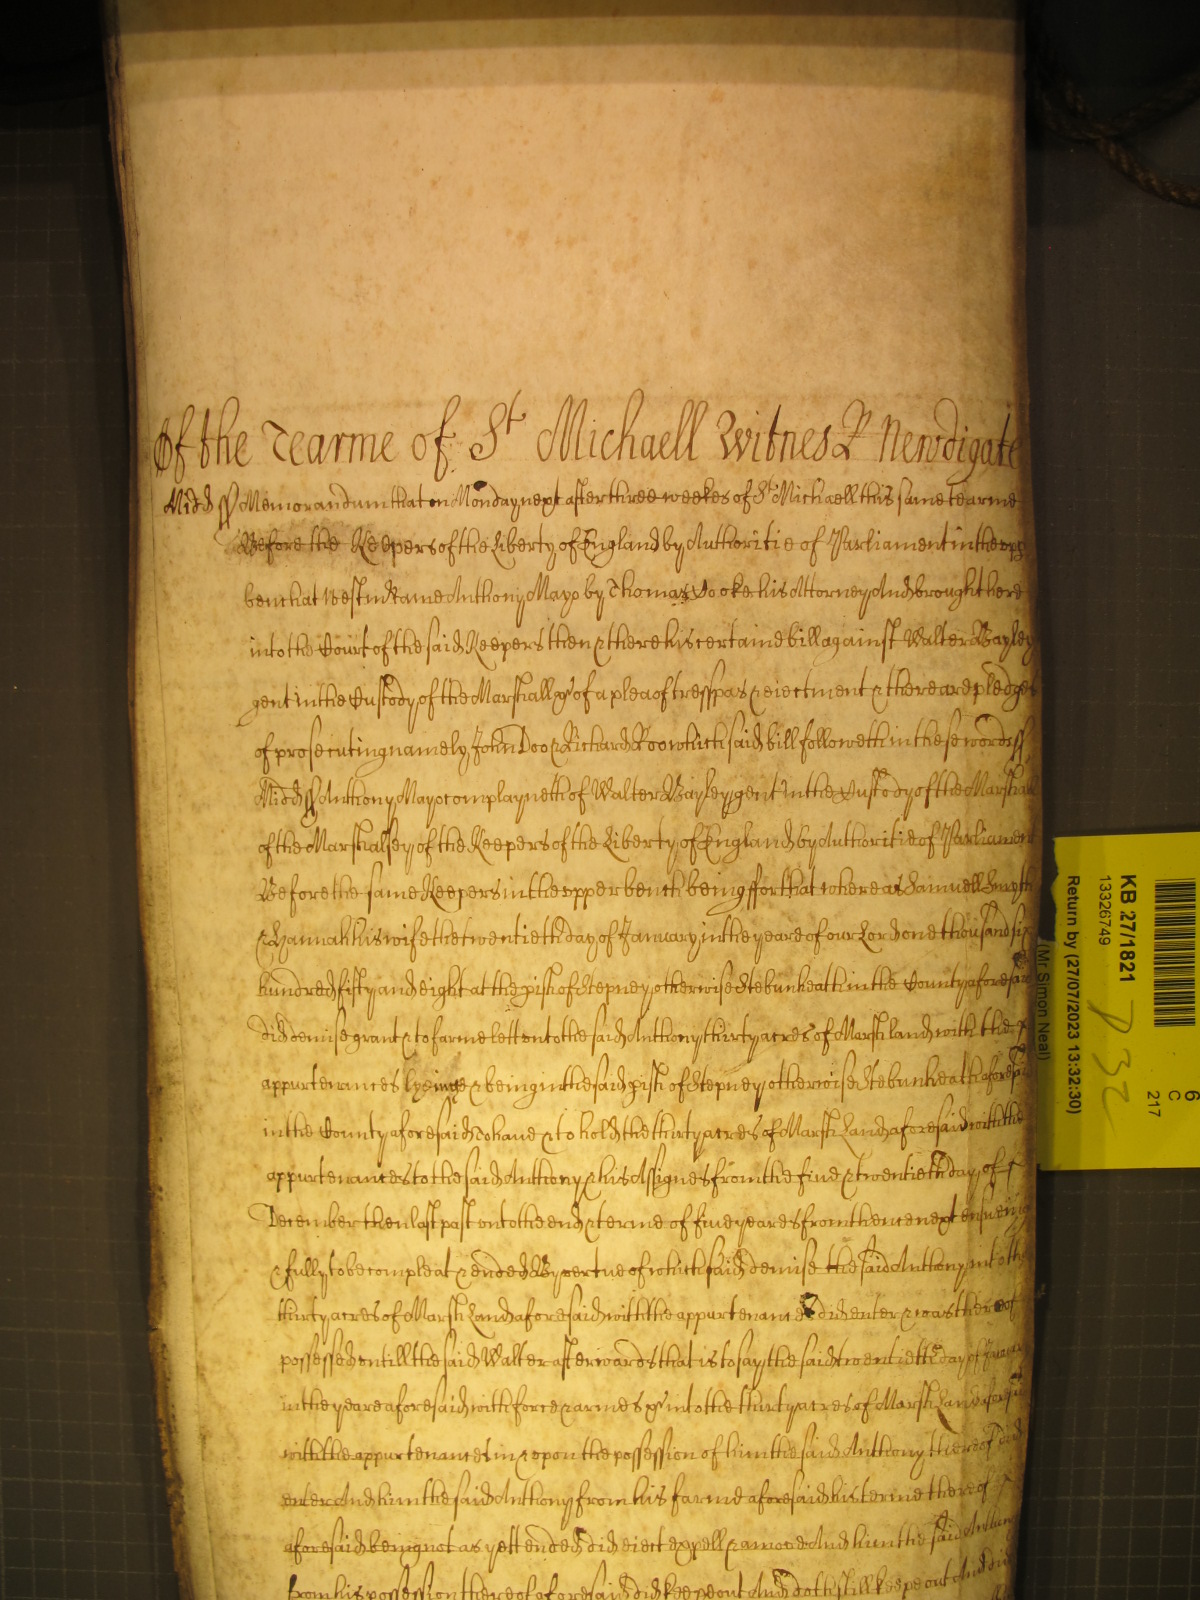 Of the Tearme of St Michaell Witnes R Newdigate
Midd ss Memorandum that on Monday next after three weekes of St Michaell this same tearme
Before the Keepers of the Liberty of England by Authoritie of Parliament in the upp
bench at Westm Came Anthony Mayo by Thomas Cooke his Attorney And brought here
into the Court of the said Keepers then & there his certaine bill against Walter Bayley
gent in the Custody of the Marshall &c of a plea of tresspas & eiectment & there are pledges
of prosecuting namely John Doo & Richard Roo which said bill followeth in these words ss
Midd ss Anthony Mayo complayneth of Walter Bayley gent in the Custody of the Marshall
of the Marshalsey of the Keepers of the Liberty of England by Authoritie of Parliament
Before the same Keepers in the upper bench being ffor that whereas Samuell Smyth
& Hannah his wife the twentieth day of January in the yeare of our Lord one thousand six
hundred fifty and eight at the pish of Stepney otherwise Stebunheath in the County aforesaid
did demise grant & to farme lett unto the said Anthony thirty acres of Marsh land with the
appurtenances lyeinge & being in the said pish of Stepney otherwise Stebunheath aforesaid
in the County aforesaid To have & to hold the thirty acres of Marsh Land aforesaid with the
appurtenances to the said Anthony & his Assignes from the five & twentieth day of
December then last past unto the end & terme of five yeares from thence next ensueing
& fully to be compleat & ended By vertue of which said demise the said Anthony into the
thirty acres of Marsh Land aforesaid with the appurtenances did enter & was thereof
possessed untill the said Walter afterwards that is to say the said twentieth day of January
in the yeare aforesaid with force & armes &c into the thirty acres of Marsh Land aforesaid
with the appurtenances in & upon the possession of him the said Anthony thereof did
enter And him the said Anthony from his farme aforesaid his terme thereof
aforesaid being not as yett ended did eiect expell & amove And him the said Anthony
from his possession thereof aforesaid did keepe out And doth still keepe out And did
KB 27/1821
13326749
Return by (27/07/2023 13:32:30)
(Mr Simon Neal)
6
C
217
P 32